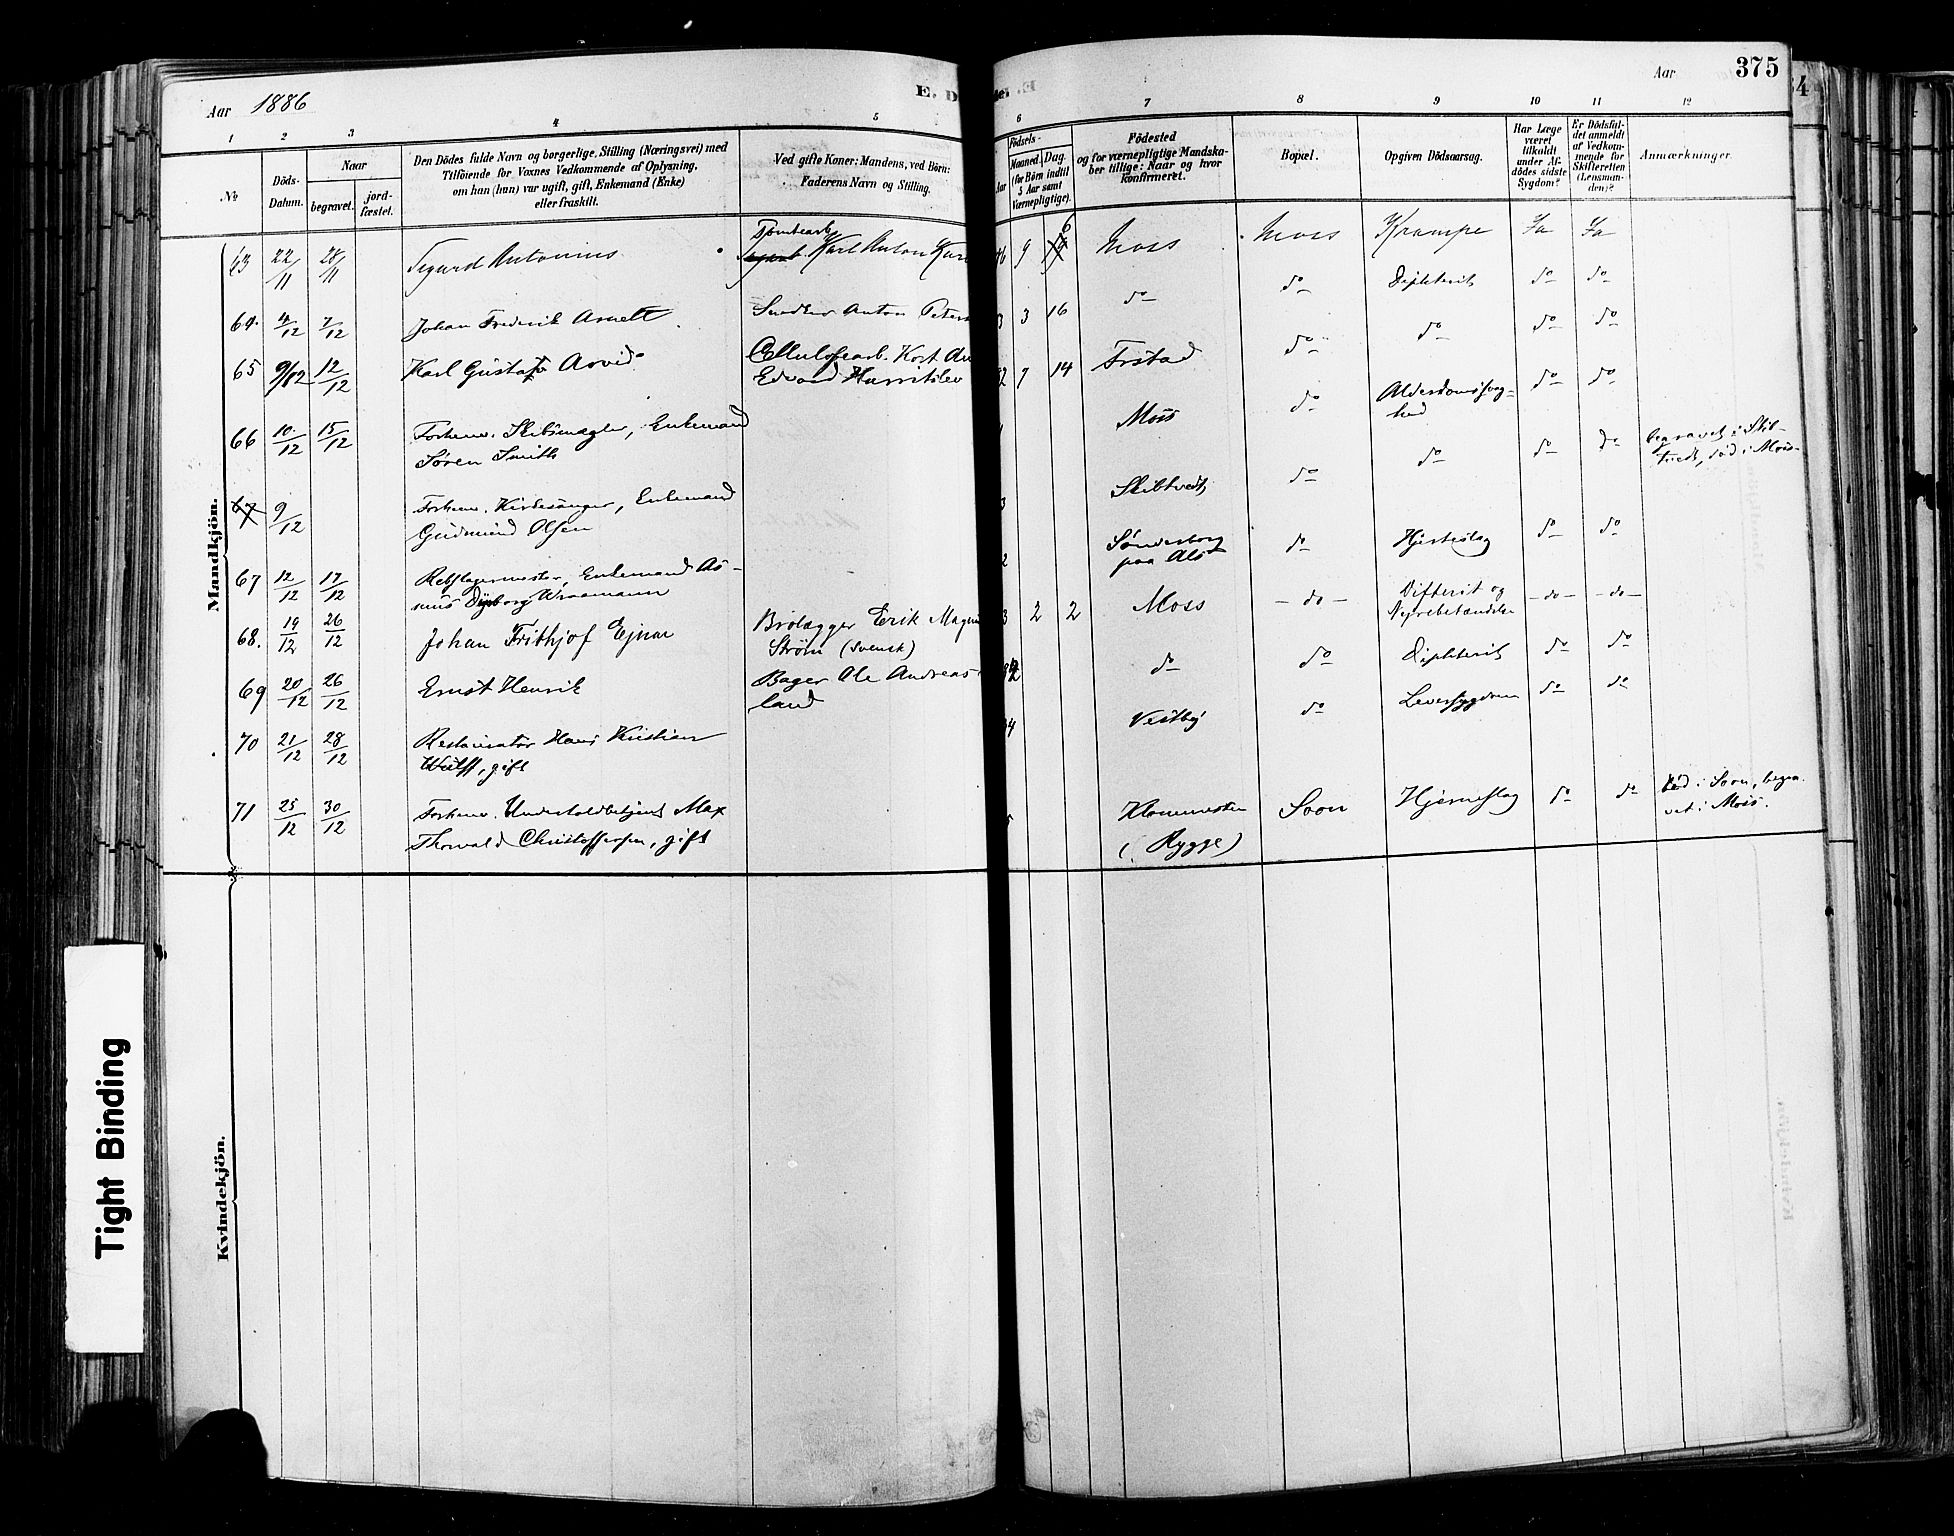 Aar 1886
E. D
Aar
375
1 2 3 4 5 6 7 8 9 10 11 12
No
Döds-
Datum.
Naar
begravet.
jord-
fæstet.
Den Dödes fulde Navn og borgerlige Stilling (Næringsvei) med
Tilföiende for Voxnes Vedkommende af Oplysning,
om han (hun) var ugift, gift, Enkemand (Enke)
eller fraskilt.
Ved gifte Koner: Mandens, ved Börn:
Faderens Navn og Stilling.
Födsels-
Aar
Maaned.
Dag.
(for Börn indtil
5 Aar samt
Værnepligtige).
Födested
og for værnepligtige Mandska-
ber tillige: Naar og hvor
konfirmeret.
Bopæl.
Opgiven Dödsaarsag.
Har Læge
været
tilkaldt
under Af-
dödes sidste
Sygdom?
Er Dödsfal-
det anmeldt
af Vedkom-
mende for
Skifteretten
(Lensman-
den)?
Anmærkninger.
Mandkjön.
63 22/11 28/11 Sigurd Antonius Tomtearb. Karl Anton 9 6 Moss Moss Krampe Ja Ja
64. 4/12 7/12 Johan Frederik Arnelt Snedker Anton Peters 3 3 16 do do Diphterit do do
65 9/12 12/12 Karl Gustaf Arvid Cellulosearb. Kort An
Edvard Hurritslev 7 14 Frstad do do do do
66 10/12 15/12 Forhenv. Skibsmægler, Enkemand
Søren Smith Moss do Alderdomssvag-
hed do do
67 9/12 Forhenv. Kirkesanger, Enkemand
Gudmund Olsen Skibtvedt do do do do begravet i Skib-
tvedt, död i Moss
67 12/12 17/12 Rebslagermester, Enkemand As-
mus Dyborg Wraamann Sønderborg
paa Als do Hjerteslag do do
68. 19/12 26/12 Johan Frithjof Ejnar Brolægger Erik Magnu
Strøm (svensk) 3 2 2 Moss - do - Difterit og
Nyrebetændelse - do - - do -
69 20/12 26/12 Ernst Henrik Bager Ole Andreas
land do do Diphterit do do
70 21/12 28/12 Restauratør Hans Kristian
Wulff, gift Vestby do Leversygdom do do
71 25/12 30/12 Forhenv. Underholdbetjent Max
Thorvald Christoffersen, gift
(Rygge) Soon Hjerneslag do do Död i Soon, begra-
vet i Moss.
Kvindekjön.
Tight Binding